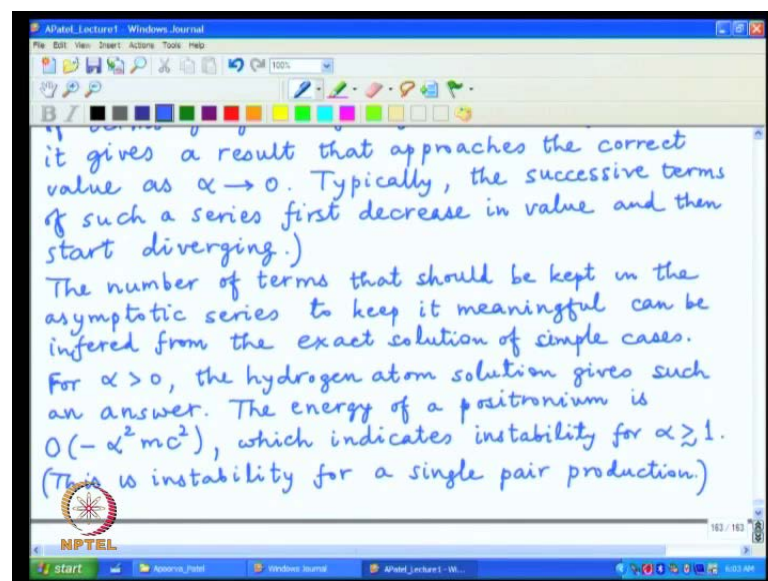 APatel_Lecture1 - Windows Journal
File Edit View Insert Actions Tools Help
100%
B I
it gives a result that approaches the correct
value as α → 0. Typically, the successive terms
of such a series first decrease in value and then
start diverging.)
The number of terms that should be kept in the
asymptotic series to keep it meaningful can be
infered from the exact solution of simple cases.
For α > 0, the hydrogen atom solution gives such
an answer. The energy of a positronium is
O(-α² mc²), which indicates instability for α ≳ 1.
(This is instability for a single pair production.)
163 / 163
NPTEL
start Apoorva_Patel Windows Journal APatel_Lecture1 - Wi... 6:03 AM